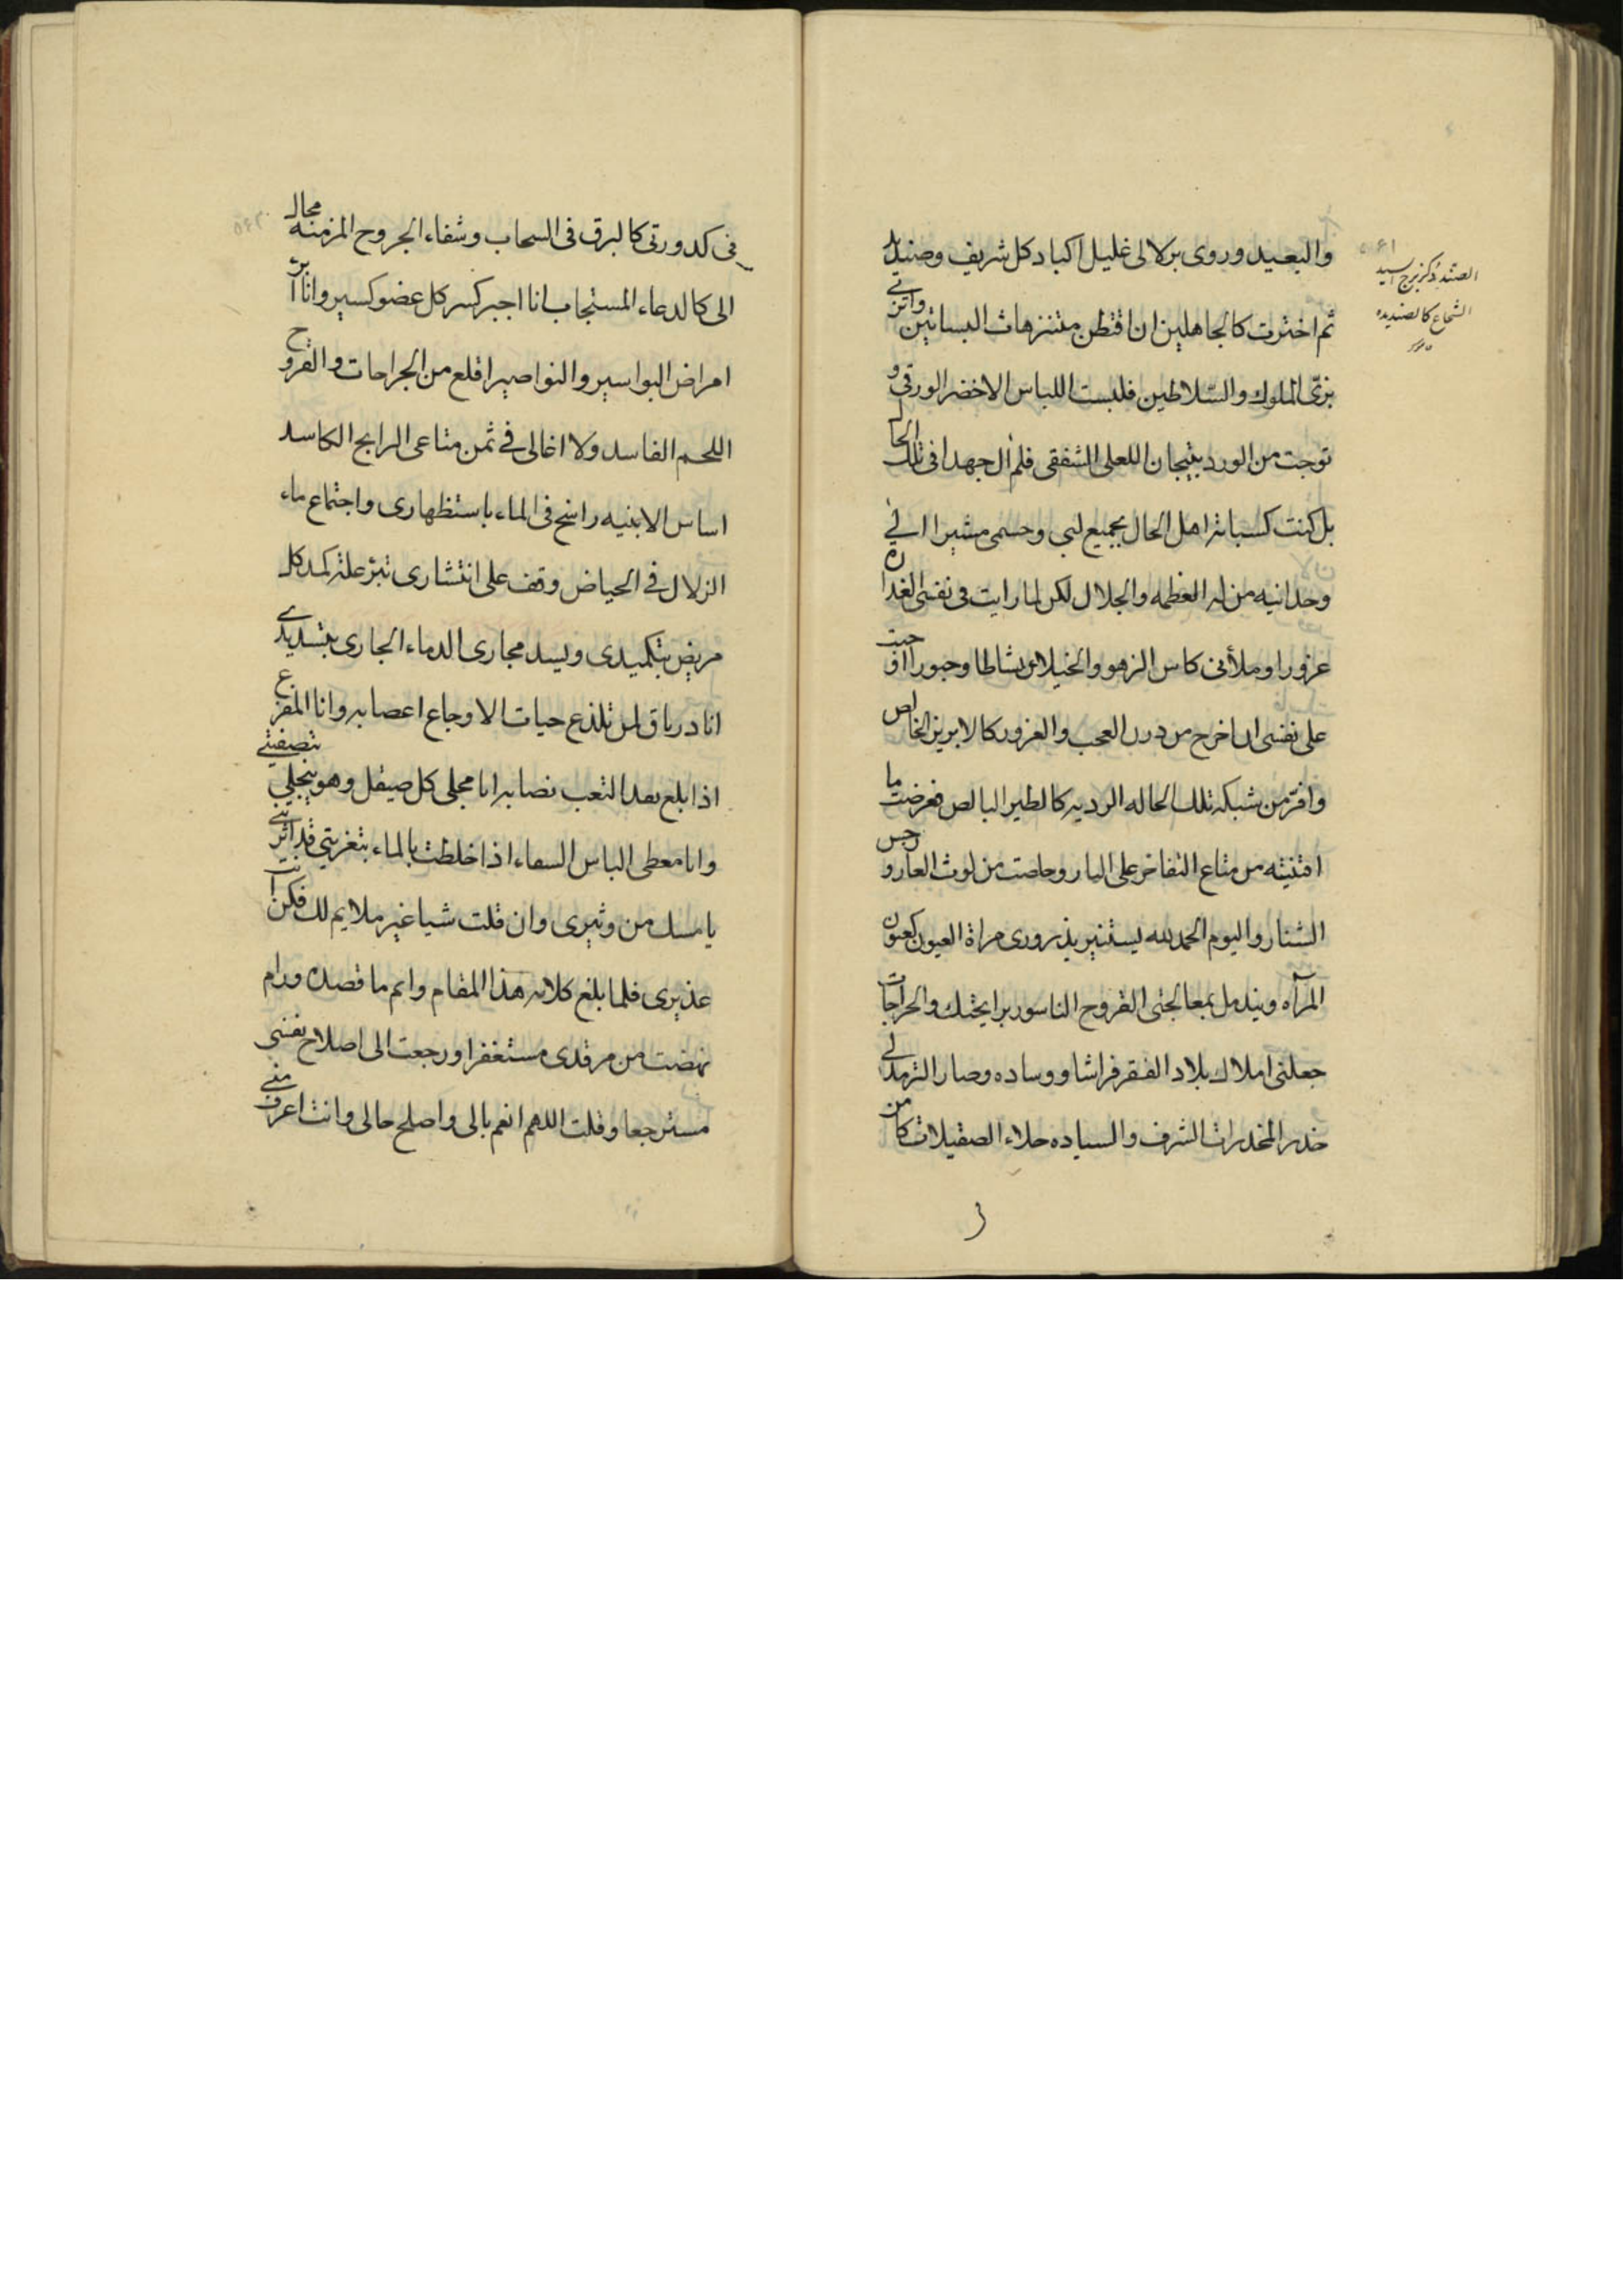 والبعيد وروى بزلالى غليل اكباد كل شريف وصنديد
ثم اخترت كالجاهلين ان اقتطن متنزهات البساتين واتزنى
بزى الملوك والسلاطين فلبست اللباس الاخضر الورقى و
توجت من الورد بتيجان اللعلى الشفقى فلم ال جهدا فى تلك الحال
بل كنت كسبابة اهل الحال بجميع لبى وحسمى مشيرا الى
وحدانيه من له العظمه والجلال لكن لما رايت فى نفسى الغداره
غرورا وملأنى كاس الزهو والخيلاء نشاطا وحبورا اقترحت
على نفسى ان اخرج من درن العجب والغرور كالابريز الخالص
وافر من شبكة تلك الحاله الرديه كالطير البالص فعرضت ما
اقتنيته من متاع التفاخر على النار وخلصت من لوث العار ورجس
الشنار واليوم الحمد لله يستنير بذرورى مراة العيون كعيون
المرآه ويندمل بمعالجتى القروح الناسور برايحتك والجراحات
جعلنى املاك بلاد الفقر فراشا ووساده وصار الترمد لى
خدر المخدرات الشرف والسياده جلاء الصقيلات كامن
الصندد كزبرج السيد
الشجاع كالصنديد
فى كدورتى كالبرق فى السحاب وشفاء الجروح المزمنه محال
الى كالدعاء المستجاب انا اجبر كسر كل عضو كسير وانا ابرء
امراض البواسير والنواصير اقلع من الجراحات والقروح
اللحم الفاسد ولا اغالى فى ثمن متاعى الرابح الكاسد
اساس الابنيه راسخ فى الماء باستظهارى واجتماع ماء
الزلال فى الحياض وقف على انتشارى تبرء علة كمد كل
مريض بتكميدى ويسد مجارى الدماء الجارى بتسديدى
انا درياق لمن تلذع حيات الاوجاع اعصابه وانا المفزع
اذا بلغ بعد التعب نصابه انا مجلى كل صيقل وهو ينجلى بتصفيتى
وانا معطى الباس السماء اذا خلطت بالماء بتغريتى قد اثرتنى
يا مسك من وثيرى وان قلت شيا غير ملايم لك فكن انت
عذيرى فلما بلغ كلامه هذا المقام واتم ما قصده ورام
نهضت من مرقدى مستغفرا ورجعت الى اصلاح نفسى
مسترجعا وقلت اللهم انعم بالى واصلح حالى وانت اعرف منى